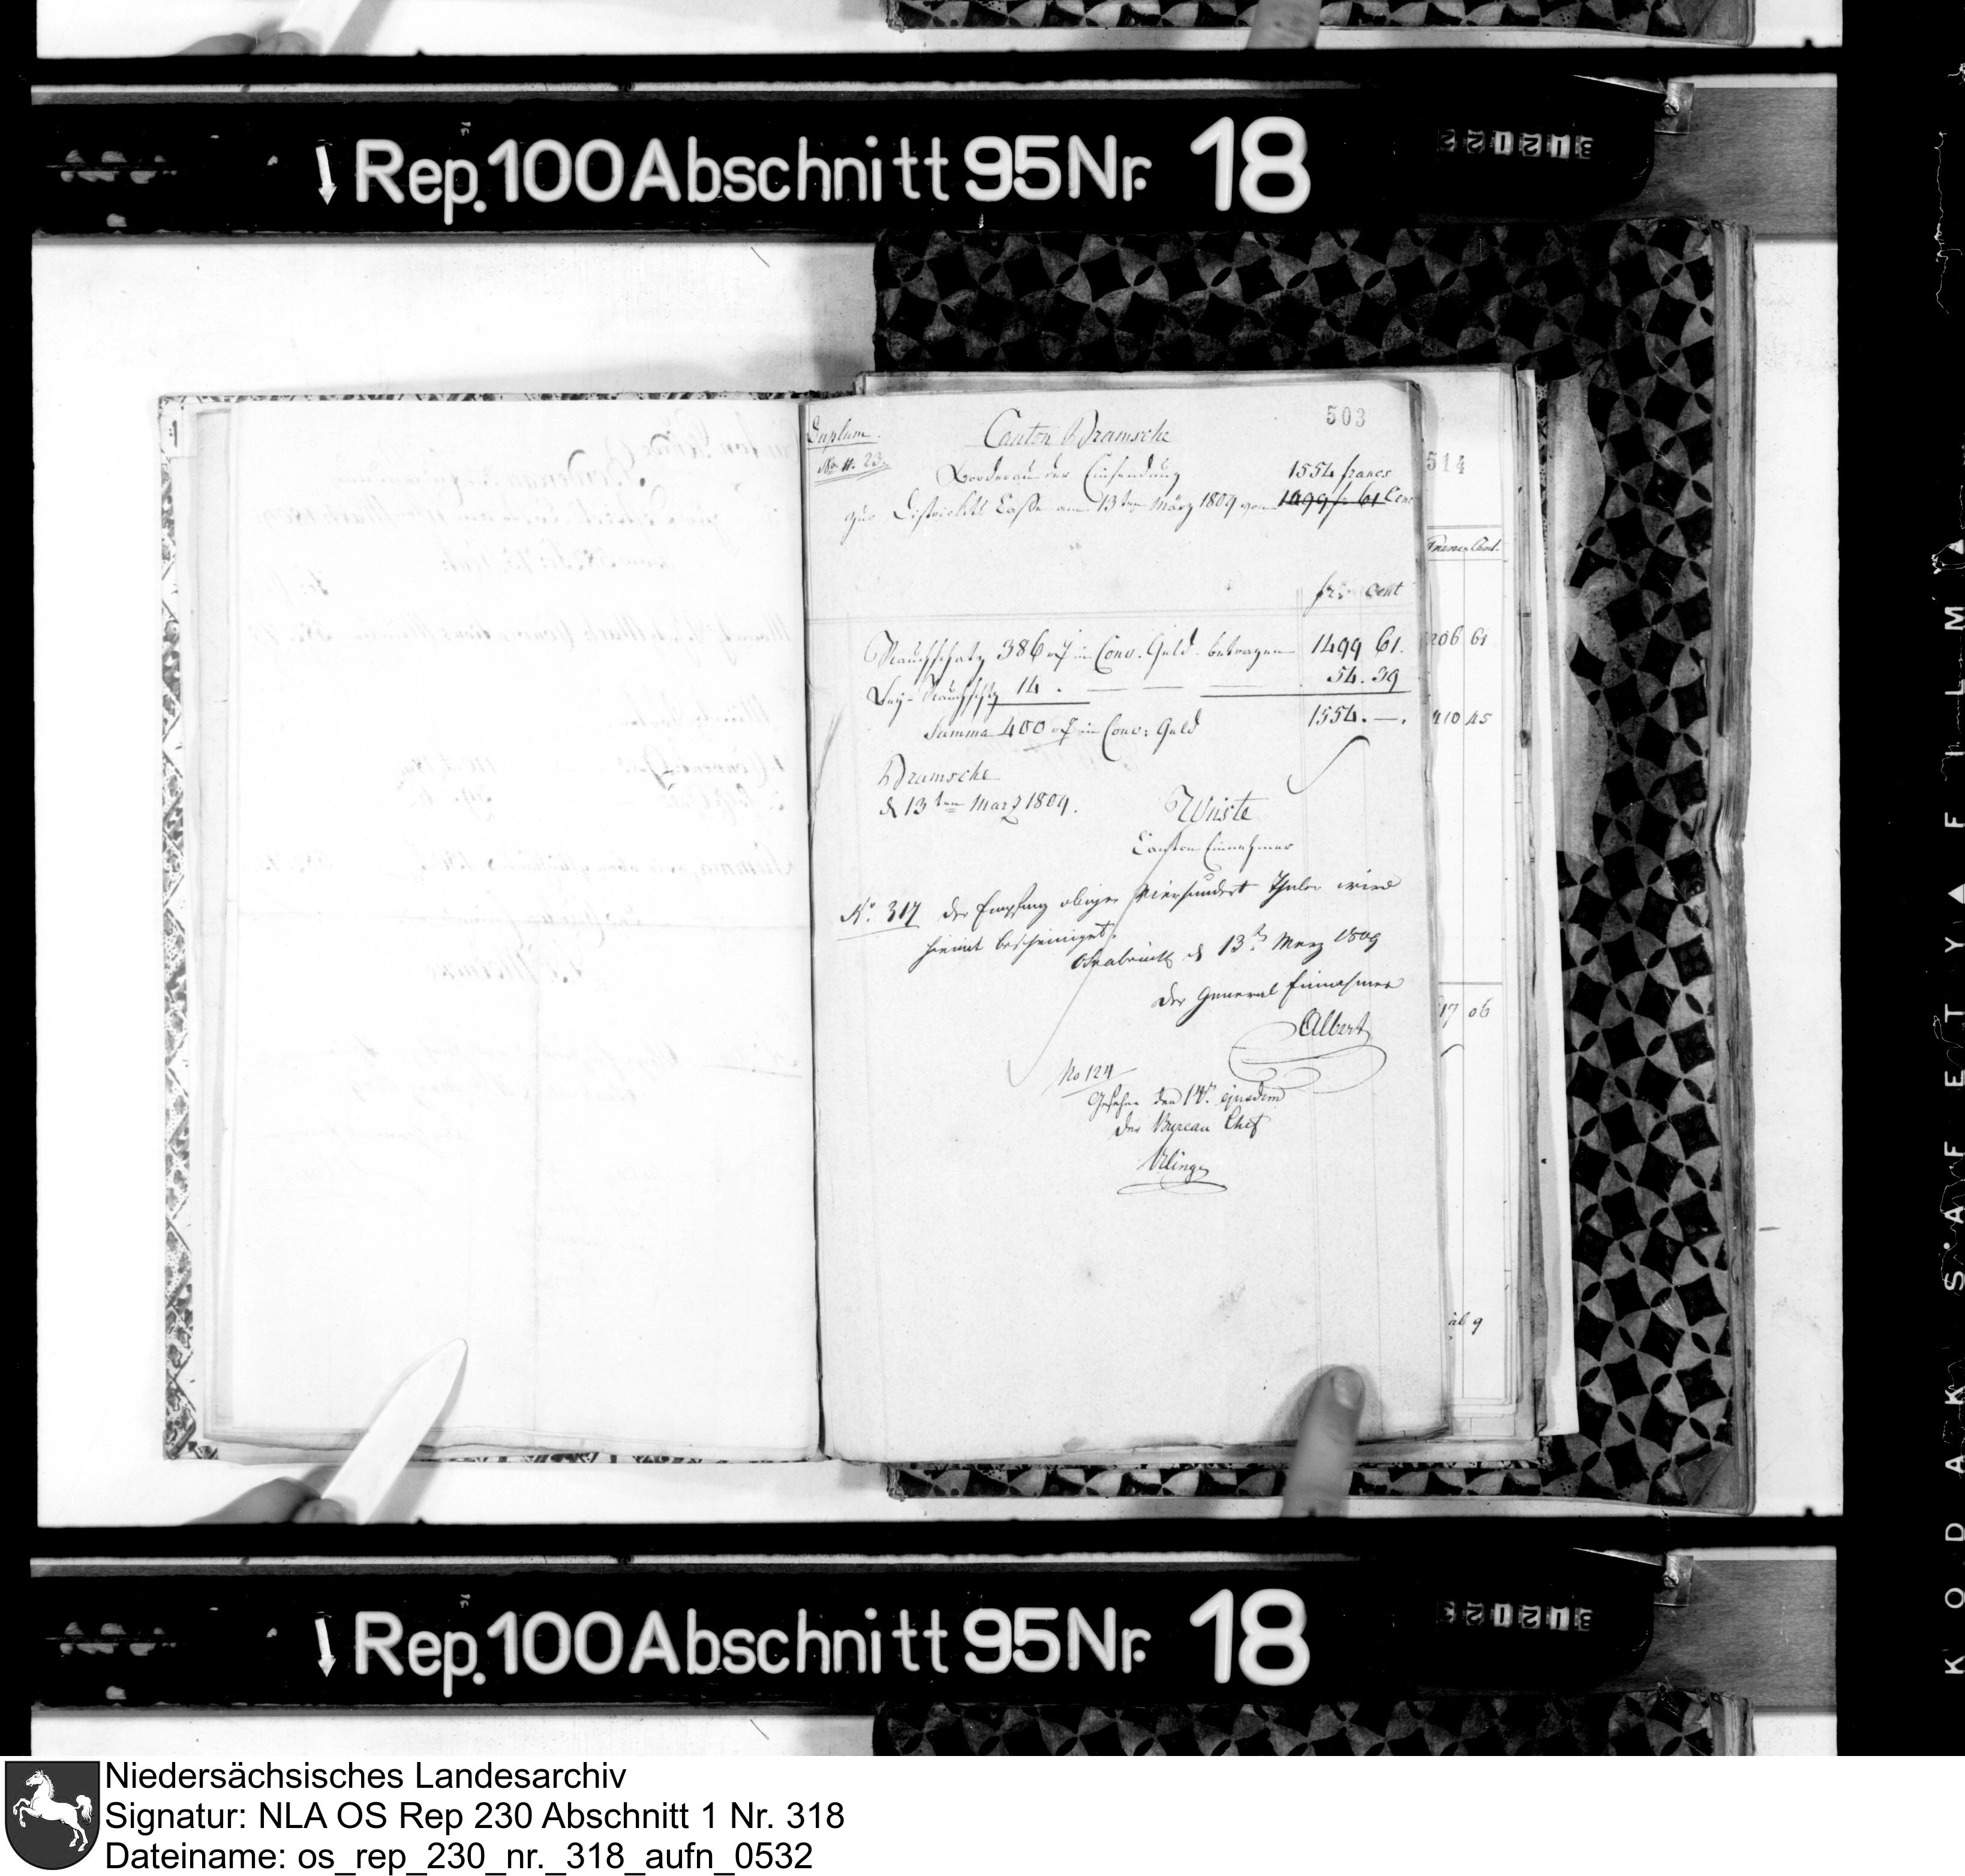 Rep. 100 Abschnitt 95 Nr. 18
503
Duplum.
No. 11. 23.
Canton Bramsche
Bordereau der Einsendung 1554 francs
zur Districkts Casse am 13ten März 1809 von 1499 fr. 61 Cent
frs. Cent
Rauchschatz 386 rℓ in Conv. Geld betragen 1499 61.
Bey-Rauchschatz 14. — — — 54. 39
Summa 400 rℓ in Conv: Geld 1554. —.
Bramsche
d 13ten März 1809.
Wüste
Canton Einnehmer
No. 317 Der Empfang obiger Vierhundert Thaler wird
hiemit bescheiniget.
Osnabrück d 13ten Merz 1809
Der General Einnehmer
Albert
No 124
Gesehen den 14t. ejusdem
Der Bureau Chef
514
Francs Cent.
206 61
410 45
17 06
9
Rep. 100 Abschnitt 95 Nr. 18
KODAK SAFETY FILM
Niedersächsisches Landesarchiv
Signatur: NLA OS Rep 230 Abschnitt 1 Nr. 318
Dateiname: os_rep_230_nr._318_aufn_0532